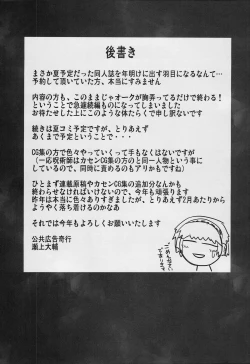 後書き
まさか夏予定だった同人誌を年明けに出す羽目になるなんて…
予約して頂いていた方、本当にすみません
内容の方も、このままじゃオークが胸弄ってるだけで終わる!
ということで急遽続編ものになってしまいました
お待たせした上にこのような体たらくで申し訳ないです
続きは夏コミ予定ですが、とりあえず
あくまで予定ということで…
CG集の方で色々やっていくって手もなくはないですが
(一応呪術師はカセンCG集の方のと同一人物という事に
しているので、同時に責めるのもアリかもですね)
ひとまず連載原稿やカセンCG集の追加分なんかも
終わらせなければいけないので、今年も頑張ります
昨年は本当に色々ありすぎましたが、とりあえず2月あたりから
ようやく落ち着けるのかなあ
それでは今年もよろしくお願いいたします
公共広告奇行
瀬上大輔
ごめんなさい